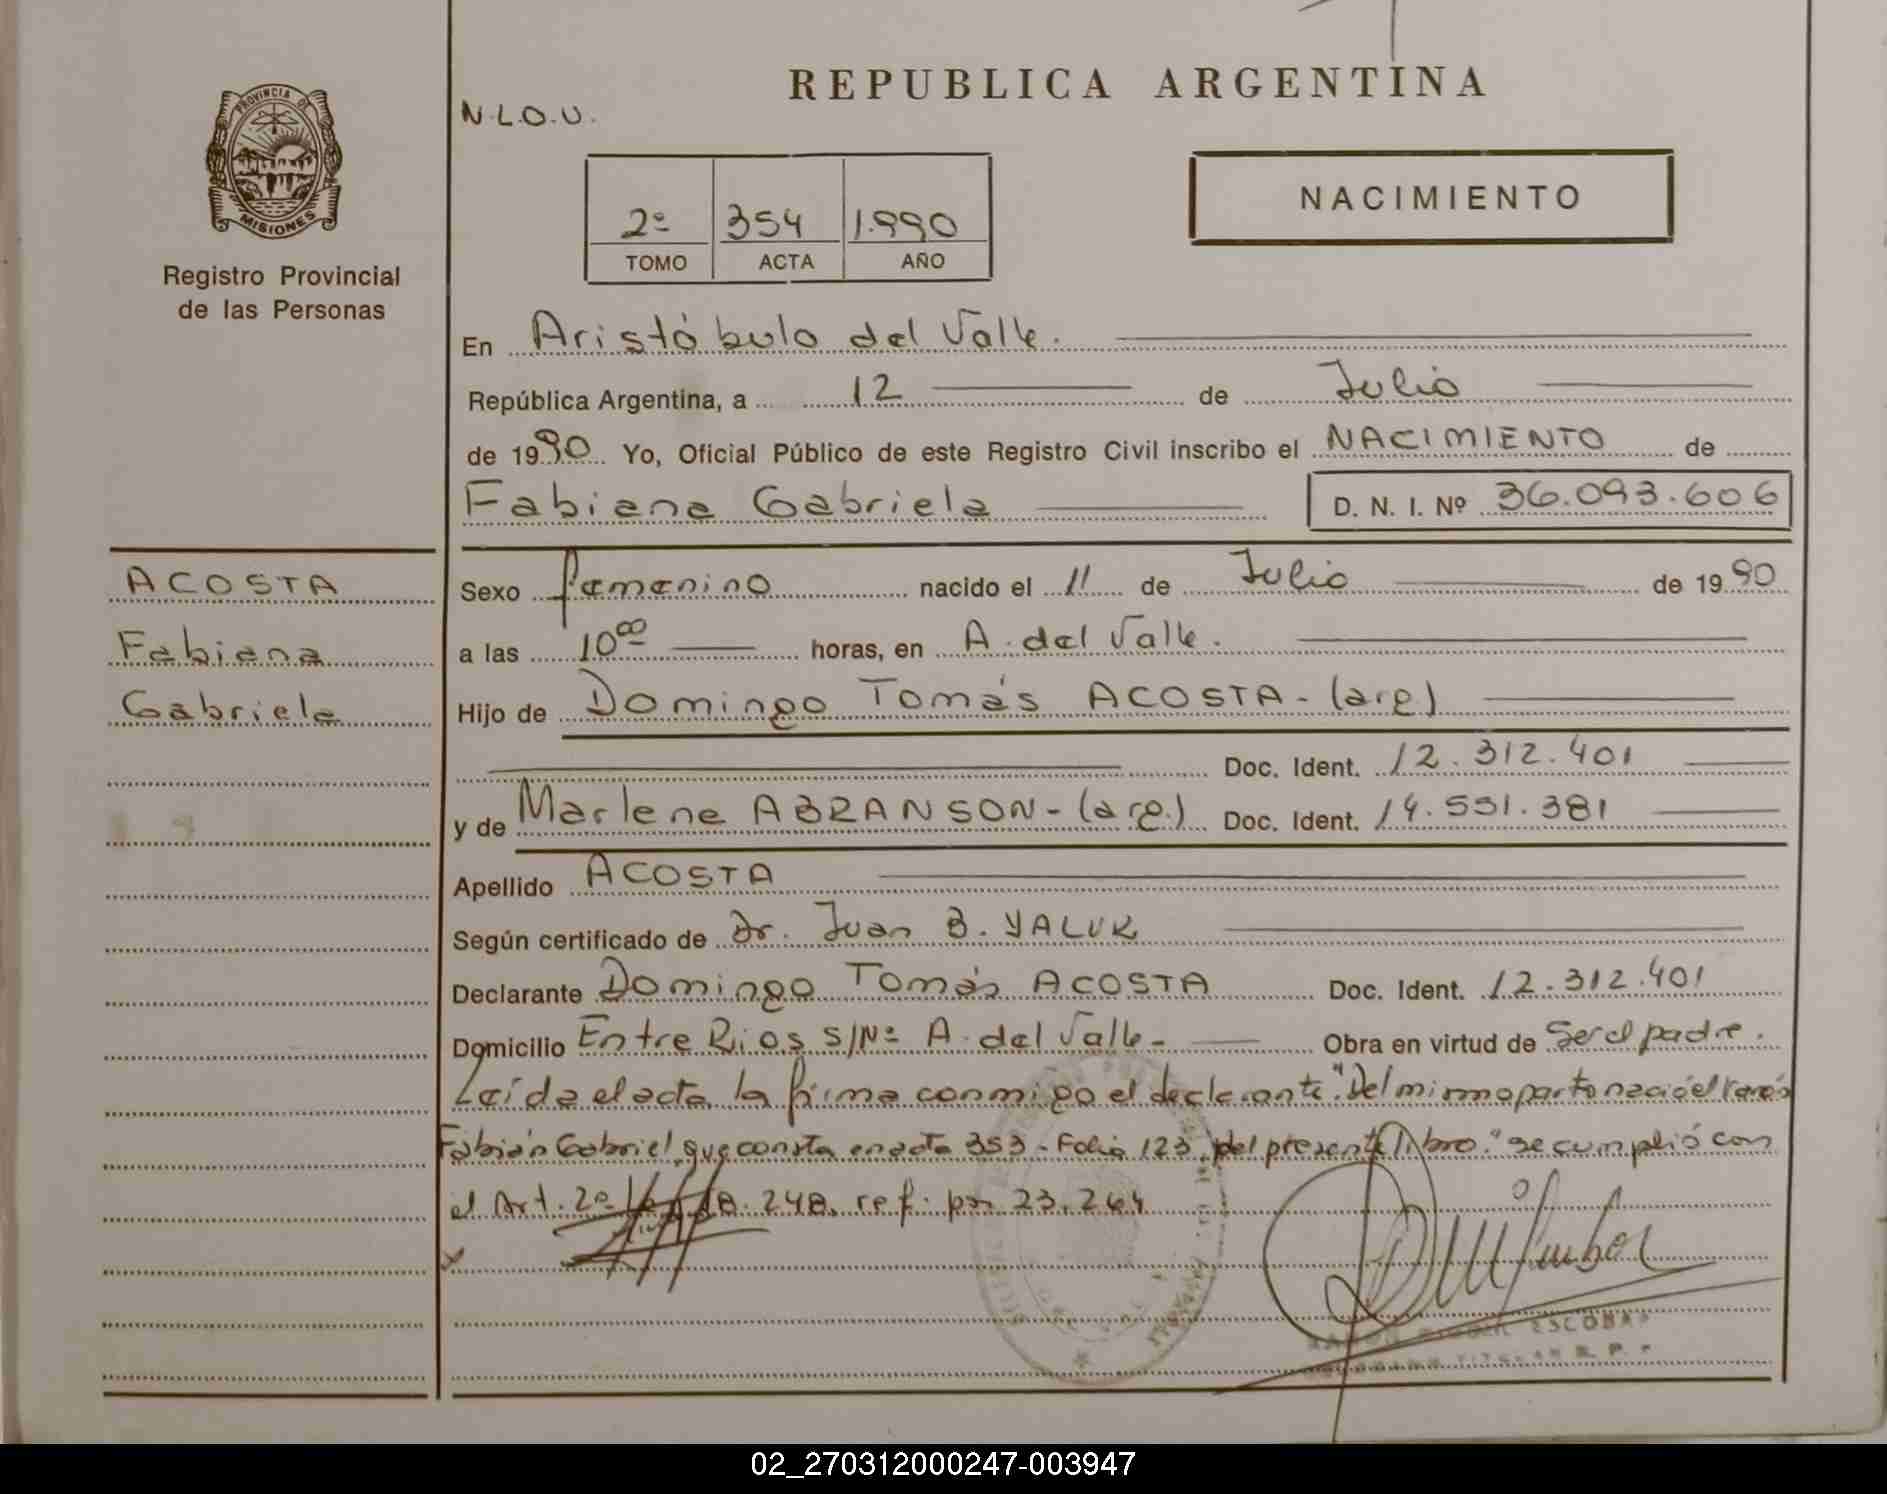 REPUBLICA ARGENTINA
PROVINCIA DE
MISIONES
Registro Provincial
de las Personas
N.L.O.U.
NACIMIENTO
2º 354 1.990
TOMO ACTA AÑO
En Aristóbulo del Valle.
República Argentina, a 12 de Julio
de 1990 Yo, Oficial Público de este Registro Civil inscribo el NACIMIENTO de
Fabiana Gabriela D. N. I. Nº 36.093.606
ACOSTA
Fabiana
Gabriela
Sexo femenino nacido el 11 de Julio de 1990
a las 10:00 horas, en A. del Valle.
Hijo de Domingo Tomás ACOSTA - (arg)
Doc. Ident. 12.312.401
y de Marlene ABRANSON - (arg.) Doc. Ident. 14.551.381
Apellido ACOSTA
Según certificado de Dr. Juan B. YALUK
Declarante Domingo Tomás ACOSTA Doc. Ident. 12.312.401
Domicilio Entre Rios S/Nº A. del Valle - Obra en virtud de Ser el padre.
Leída el acta la firma conmigo el declarante. "Del mismo parto nació el varón
Fabián Gabriel que consta en acta 353 - Folio 123 del presente libro." Se cumplió con
el Art. 2º 18.248. ref. por 23.264
ESCOBAR
TITULAR R. P.
02_270312000247-003947